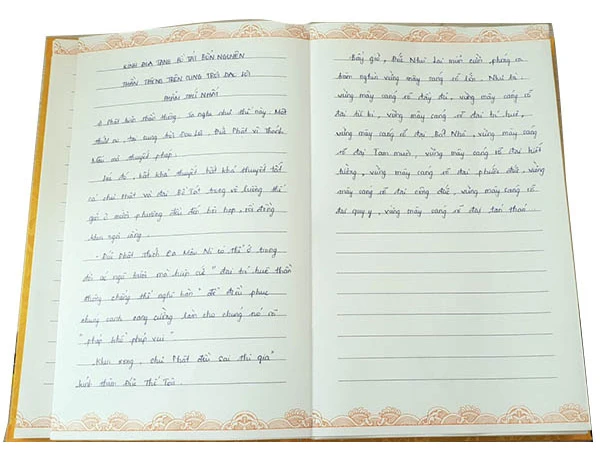 KINH ĐỊA TẠNG BỒ TÁT BỔN NGUYỆN
THẦN THÔNG TRÊN CUNG TRỜI ĐAO LỢI
PHẨM THỨ NHẤT
Phật hiện thần thông. Ta nghe như thế này. Một
thuở nọ, tại cung trời Đao Lợi, Đức Phật vì Thánh
Mẫu mà thuyết pháp.
Lúc đó, bất khả thuyết bất khả thuyết tất
cả chư Phật và đại Bồ Tát trong vô lượng thế
giới ở mười phương đều đến hội họp, rồi đồng
khen ngợi rằng.
- Đức Phật Thích Ca Mâu Ni có thể ở trong
đời ác ngũ trược mà hiện cử "đại trí huệ thần
thông chẳng thể nghĩ bàn" để điều phục
chúng sanh cang cường làm cho chúng nó rõ
"pháp khổ pháp vui"
Khen xong, chư Phật đều sai thị giả
kính thăm Đức Thế Tôn.
Bấy giờ, Đức Như Lai mỉn cười, phóng ra
trăm nghìn vừng mây sáng rỡ lớn. Như là:
vừng mây sáng rỡ đầy đủ, vừng mây sáng rỡ
đại từ bi, vừng mây sáng rỡ đại trí huệ,
vừng mây sáng rỡ đại Bát Nhã, vừng mây sáng
rỡ đại Tam muội, vừng mây sáng rỡ đại kiết
tường, vừng mây sáng rỡ đại phước đức, vừng
mây sáng rỡ đại công đức, vừng mây sáng rỡ
đại quy y, vừng mây sáng rỡ đại tán thán...